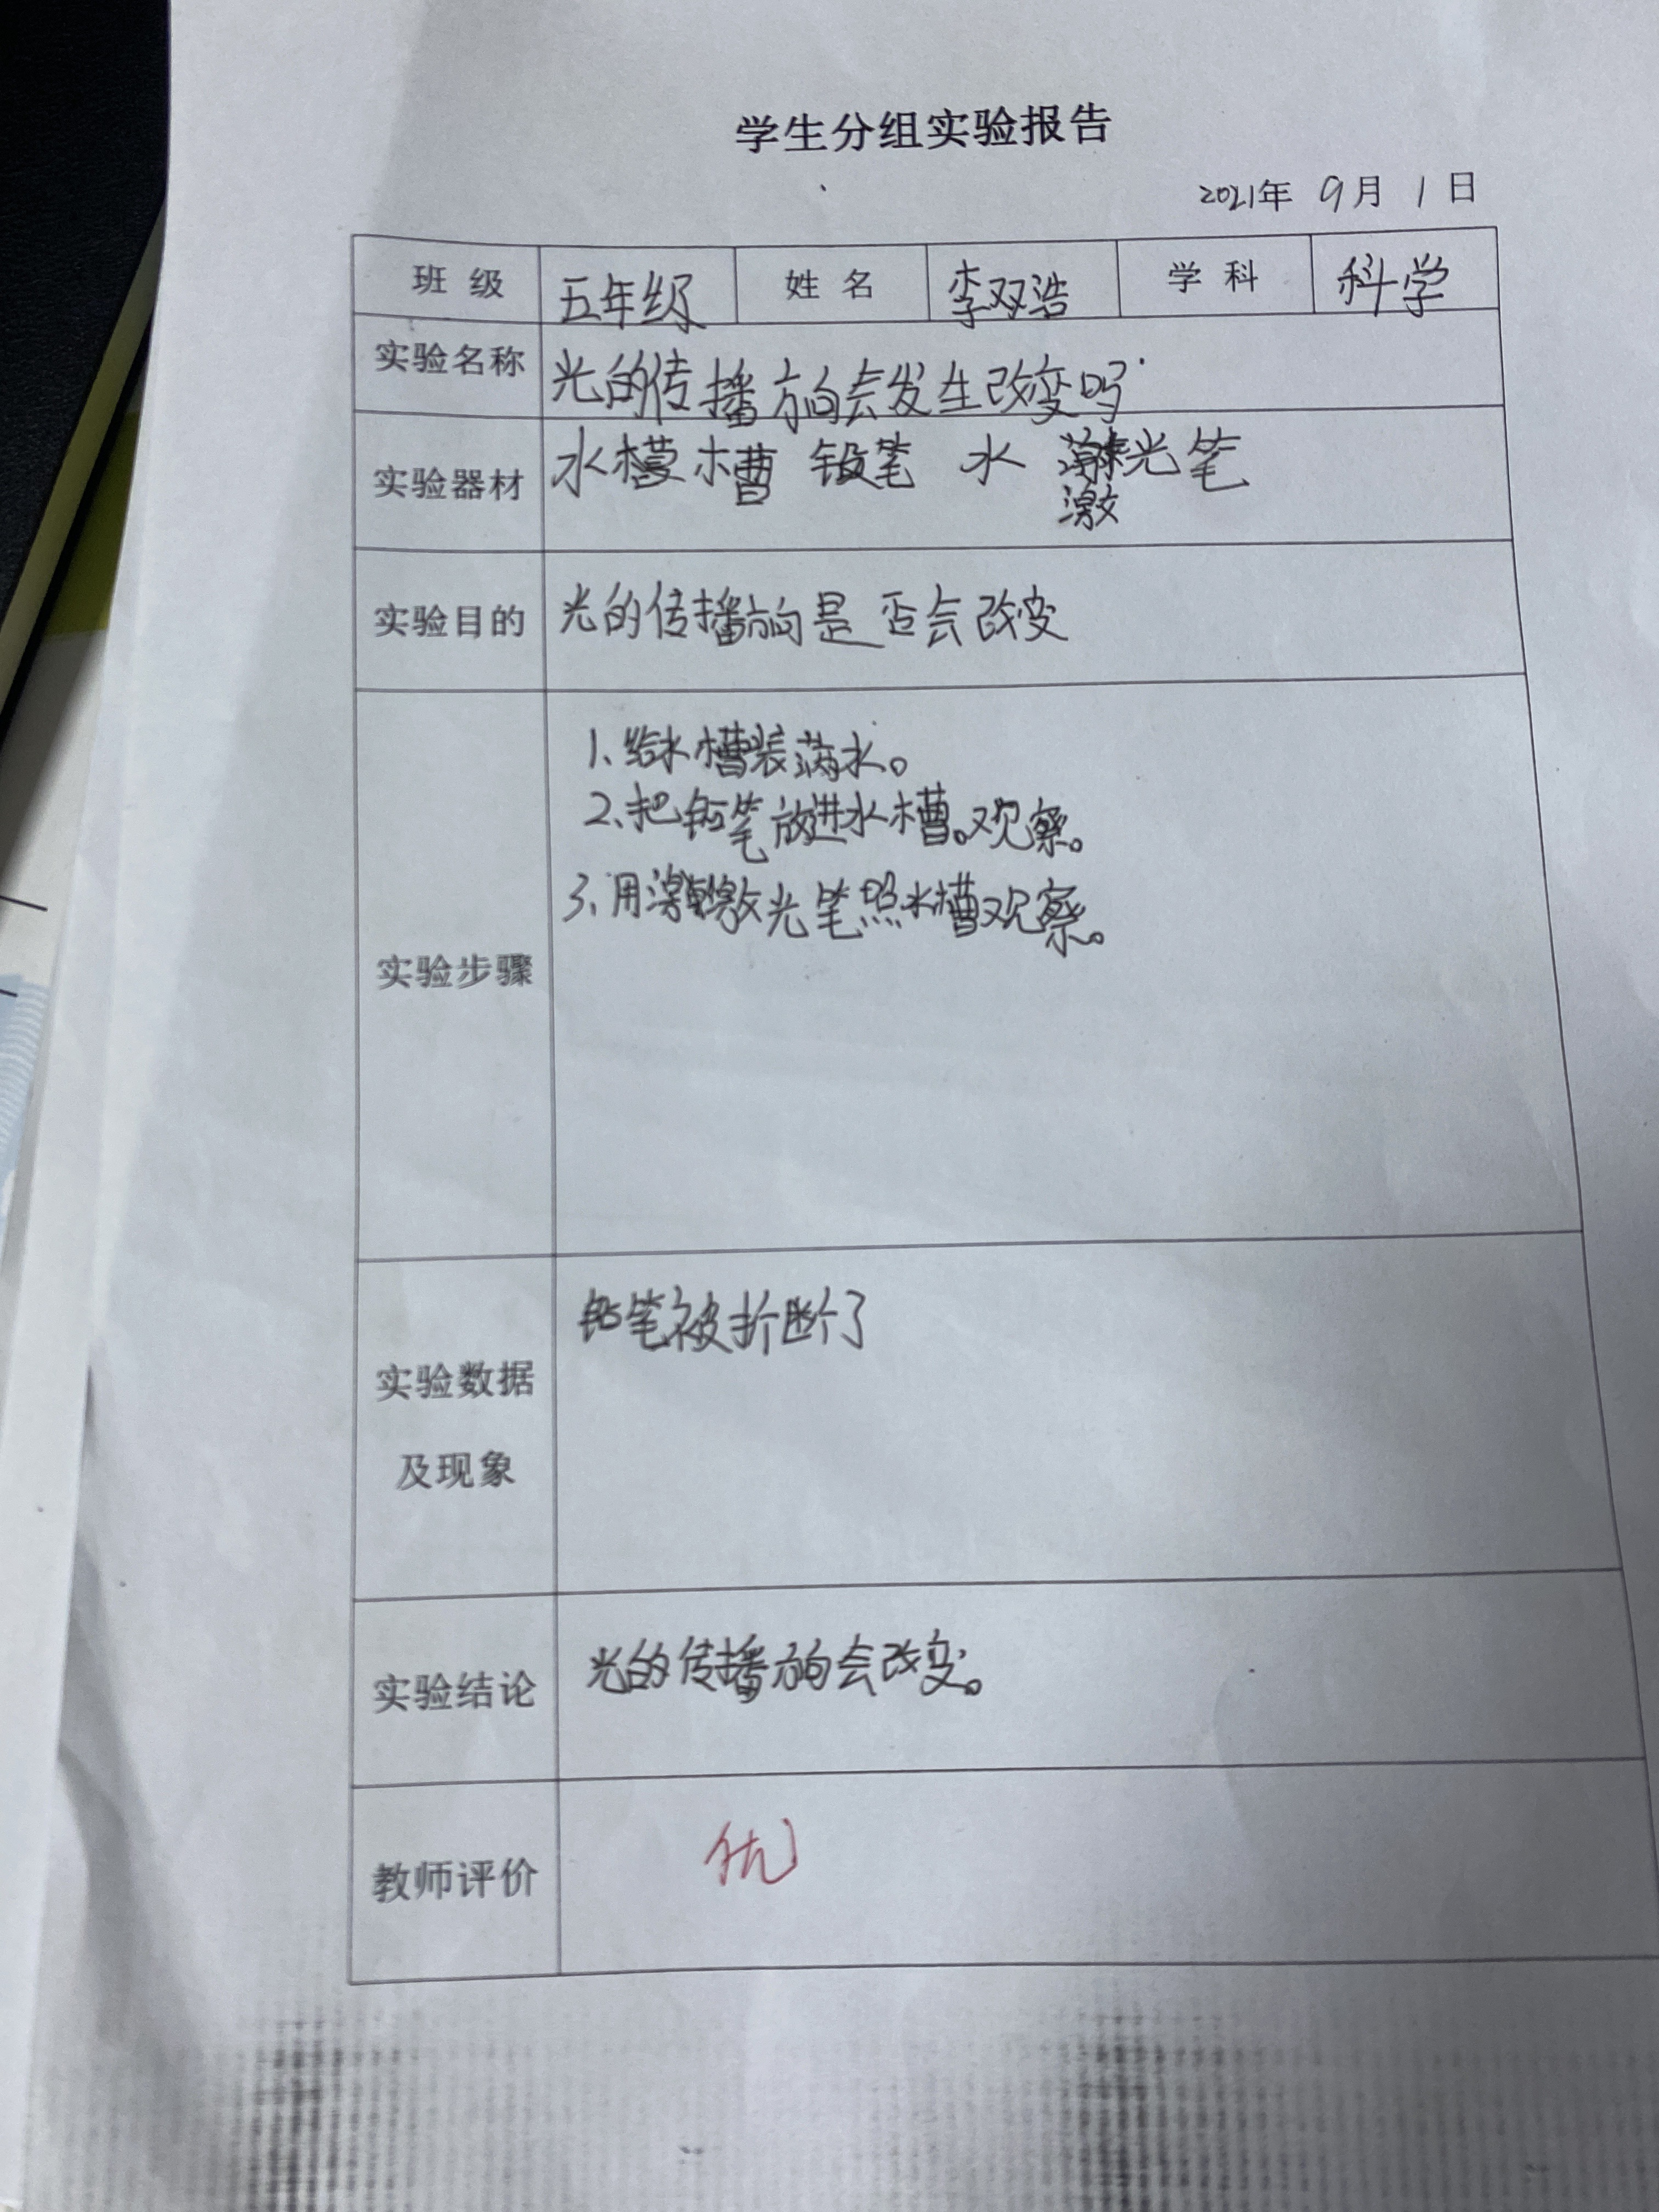 学生分组实验报告
2021年 9月 1日
班 级 五年级 姓 名 李双浩 学 科 科学
实验名称 光的传播方向会发生改变吗
实验器材 水槽 铅笔 水 光笔
激
实验目的 光的传播方向是否会改变
1、给水槽装满水。
2、把铅笔放进水槽。观察。
3、用激光笔照水槽观察。
实验步骤
铅笔被折断了
实验数据
及现象
实验结论 光的传播方向会改变。
教师评价 优